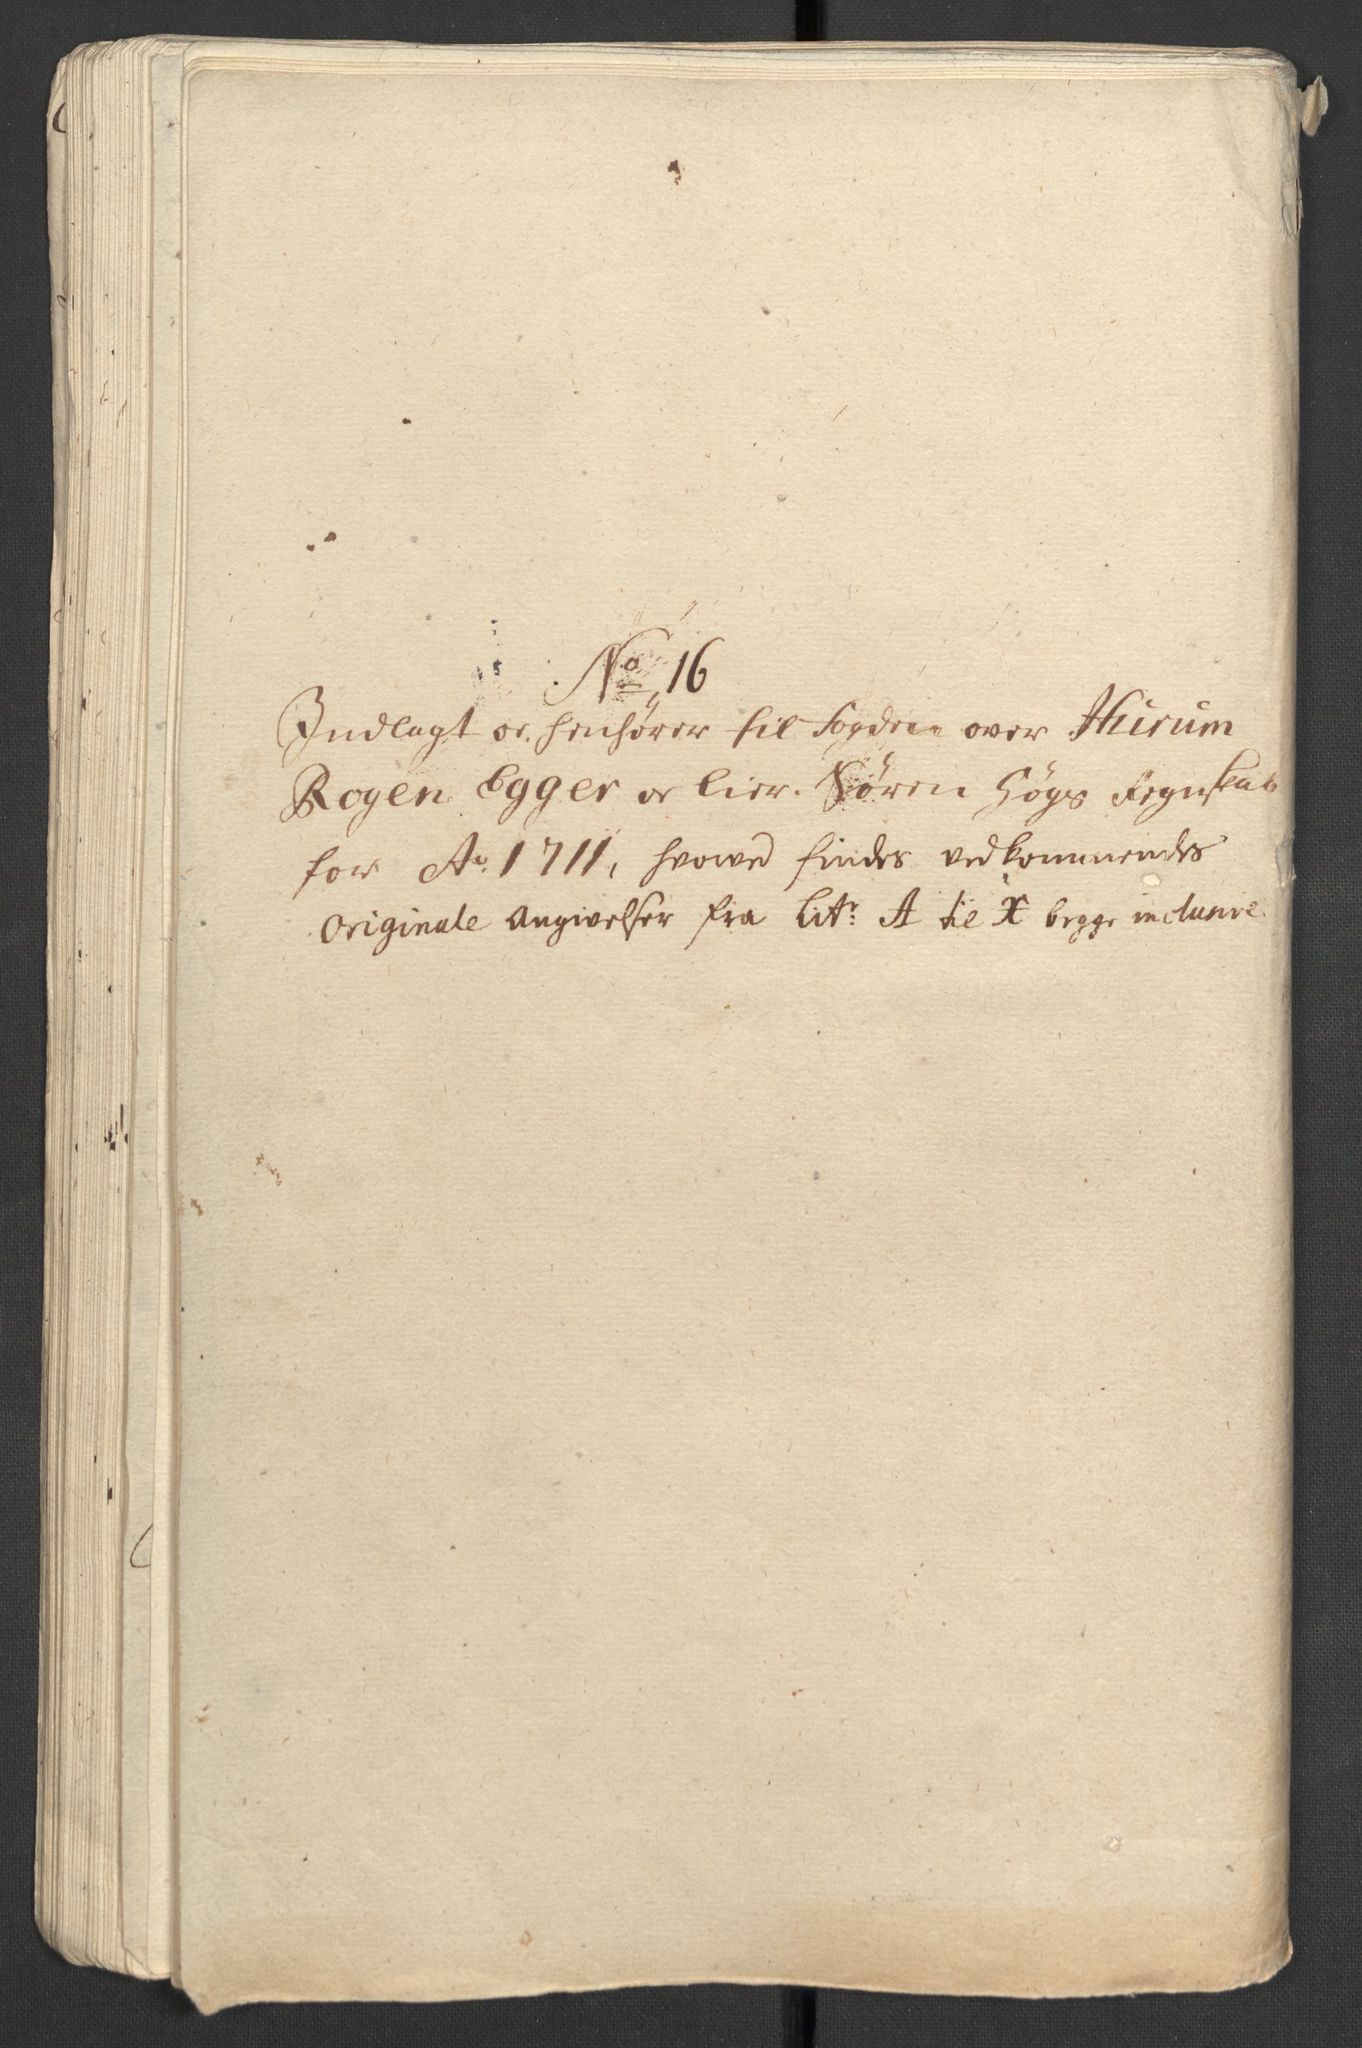 No 16
Indlagt oc henhører til Fogden over Hurum
Rogen Egger oc Lier. Søren Högs Regnskab
for Ao. 1711, hvorved findes vedkommendes
Originale Angivelser fra Litr: A til X begge inclusive